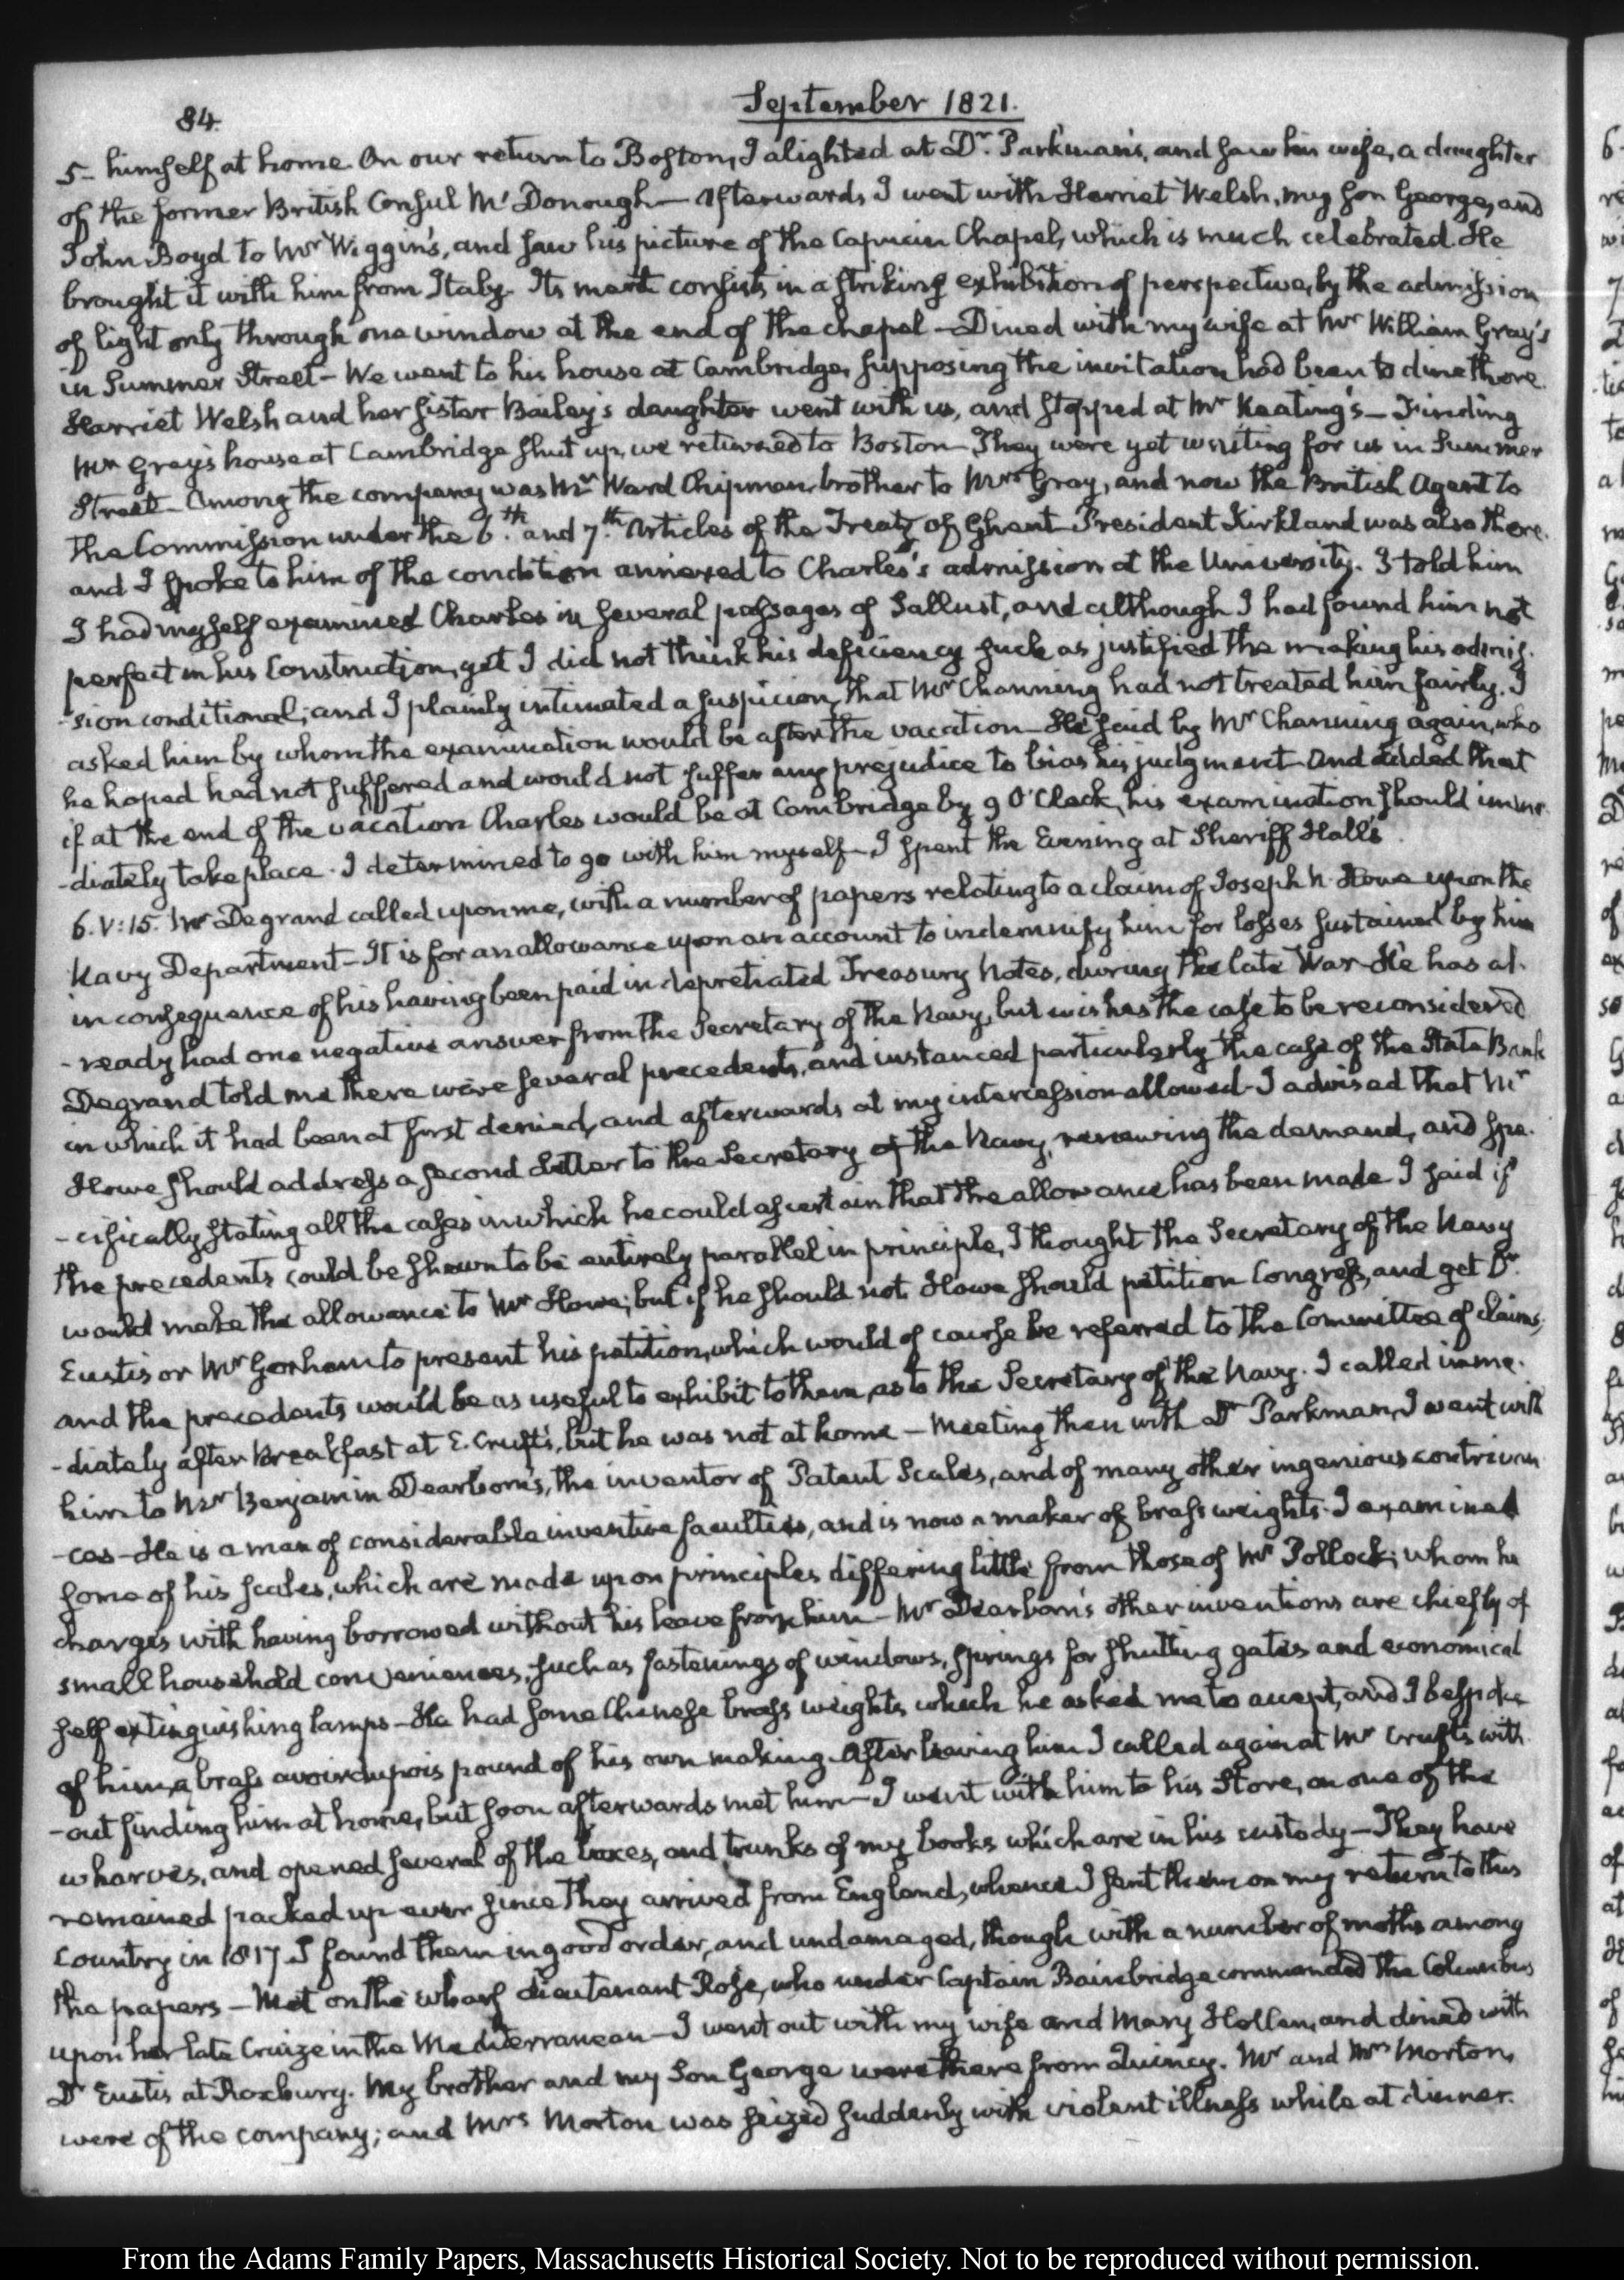 84.
September 1821.
5- himself at home. On our return to Boston, I alighted at Dr. Parkman's, and saw his wife, a daughter
of the former British Consul McDonough— Afterwards I went with Harriet Welsh, my son George, and
John Boyd to Mr Wiggin's, and saw his picture of the Capucin Chapel, which is much celebrated. He
brought it with him from Italy. Its merit consists in a striking exhibition of perspective, by the admission
of light only through one window at the end of the chapel — Dined with my wife at Mr William Gray's
in Summer Street — We went to his house at Cambridge, supposing the invitation had been to dine there.
Harriet Welsh and her sister Bailey's daughter went with us, and stopped at Mr Keating's — Finding
Mr Gray's house at Cambridge shut up, we returned to Boston — They were yet waiting for us in Summer
Street — Among the company was Mr Ward Chipman, brother to Mrs Gray, and now the British Agent to
the Commission under the 6.th and 7.th Articles of the Treaty of Ghent — President Kirkland was also there.
and I spoke to him of the condition annexed to Charles's admission at the University. I told him
I had myself examined Charles in several passages of Sallust, and although I had found him not
perfect in his Construction, yet I did not think his deficiency such as justified the making his admis-
-sion conditional; and I plainly intimated a suspicion, that Mr Channing had not treated him fairly. I
asked him by whom the examination would be after the vacation — He said by Mr Channing again, who
he hoped had not suffered and would not suffer any prejudice to bias his judgment — And added that
if at the end of the vacation Charles would be at Cambridge by 9 O'Clock, his examination should imme-
-diately take place. I determined to go with him myself — I spent the Evening at Sheriff Hall's
6. V:15. Mr Degrand called upon me, with a number of papers relating to a claim of Joseph N. Howe upon the
Navy Department — It is for an allowance upon an account to indemnify him for losses sustained by him
in consequence of his having been paid in depretiated Treasury Notes, during the late War — He has al-
-ready had one negative answer from the Secretary of the Navy, but wishes the case to be reconsidered
Degrand told me there were several precedents, and instanced particularly the case of the State Bank
in which it had been at first denied, and afterwards at my intercession allowed — I advised that Mr
Howe should address a second Letter to the Secretary of the Navy, renewing the demand, and spe-
-cifically stating all the cases in which he could ascertain that the allowance has been made I said if
the precedents could be shewn to be entirely parallel in principle, I thought the Secretary of the Navy
would make the allowance to Mr Howe; but if he should not Howe should petition Congress, and get Dr.
Eustis or Mr Gorham to present his petition, which would of course be referred to the Committee of Claims;
and the precedents would be as useful to exhibit to them, as to the Secretary of the Navy. I called imme-
-diately after Breakfast at E. Cruft's, but he was not at home — Meeting then with Dr Parkman, I went with
him to Mr Benjamin Dearborn's, the inventor of Patent Scales, and of many other ingenious contrivan
-ces — He is a man of considerable inventive faculties, and is now a maker of brass weights. I examined
some of his scales, which are made upon principles differing little from those of Mr Pollock; whom he
charges with having borrowed without his leave from him — Mr Dearborn's other inventions are chiefly of
small household conveniences, such as fastenings of windows, springs for shutting gates and economical
self extinguishing lamps — He had some Chinese brass weights which he asked me to accept, and I bespoke
of him, a brass avoirdupois pound of his own making. After leaving him I called again at Mr Cruft's with
-out finding him at home, but soon afterwards met him — I went with him to his Store, on one of the
wharves, and opened several of the boxes, and trunks of my books which are in his custody — They have
remained packed up ever since they arrived from England, whence I sent them on my return to this
Country in 1817. I found them in good order, and undamaged, though with a number of moths among
the papers — Met on the wharf Lieutenant Rose, who under Captain Bainbridge commanded the Columbus
upon her late Cruize in the Mediterranean — I went out with my wife and Mary Hellen, and dined with
Dr Eustis at Roxbury. My brother and my Son George were there from Quincy. Mr and Mrs Morton,
were of the company; and Mrs Morton was seized suddenly with violent illness while at dinner.
From the Adams Family Papers, Massachusetts Historical Society. Not to be reproduced without permission.